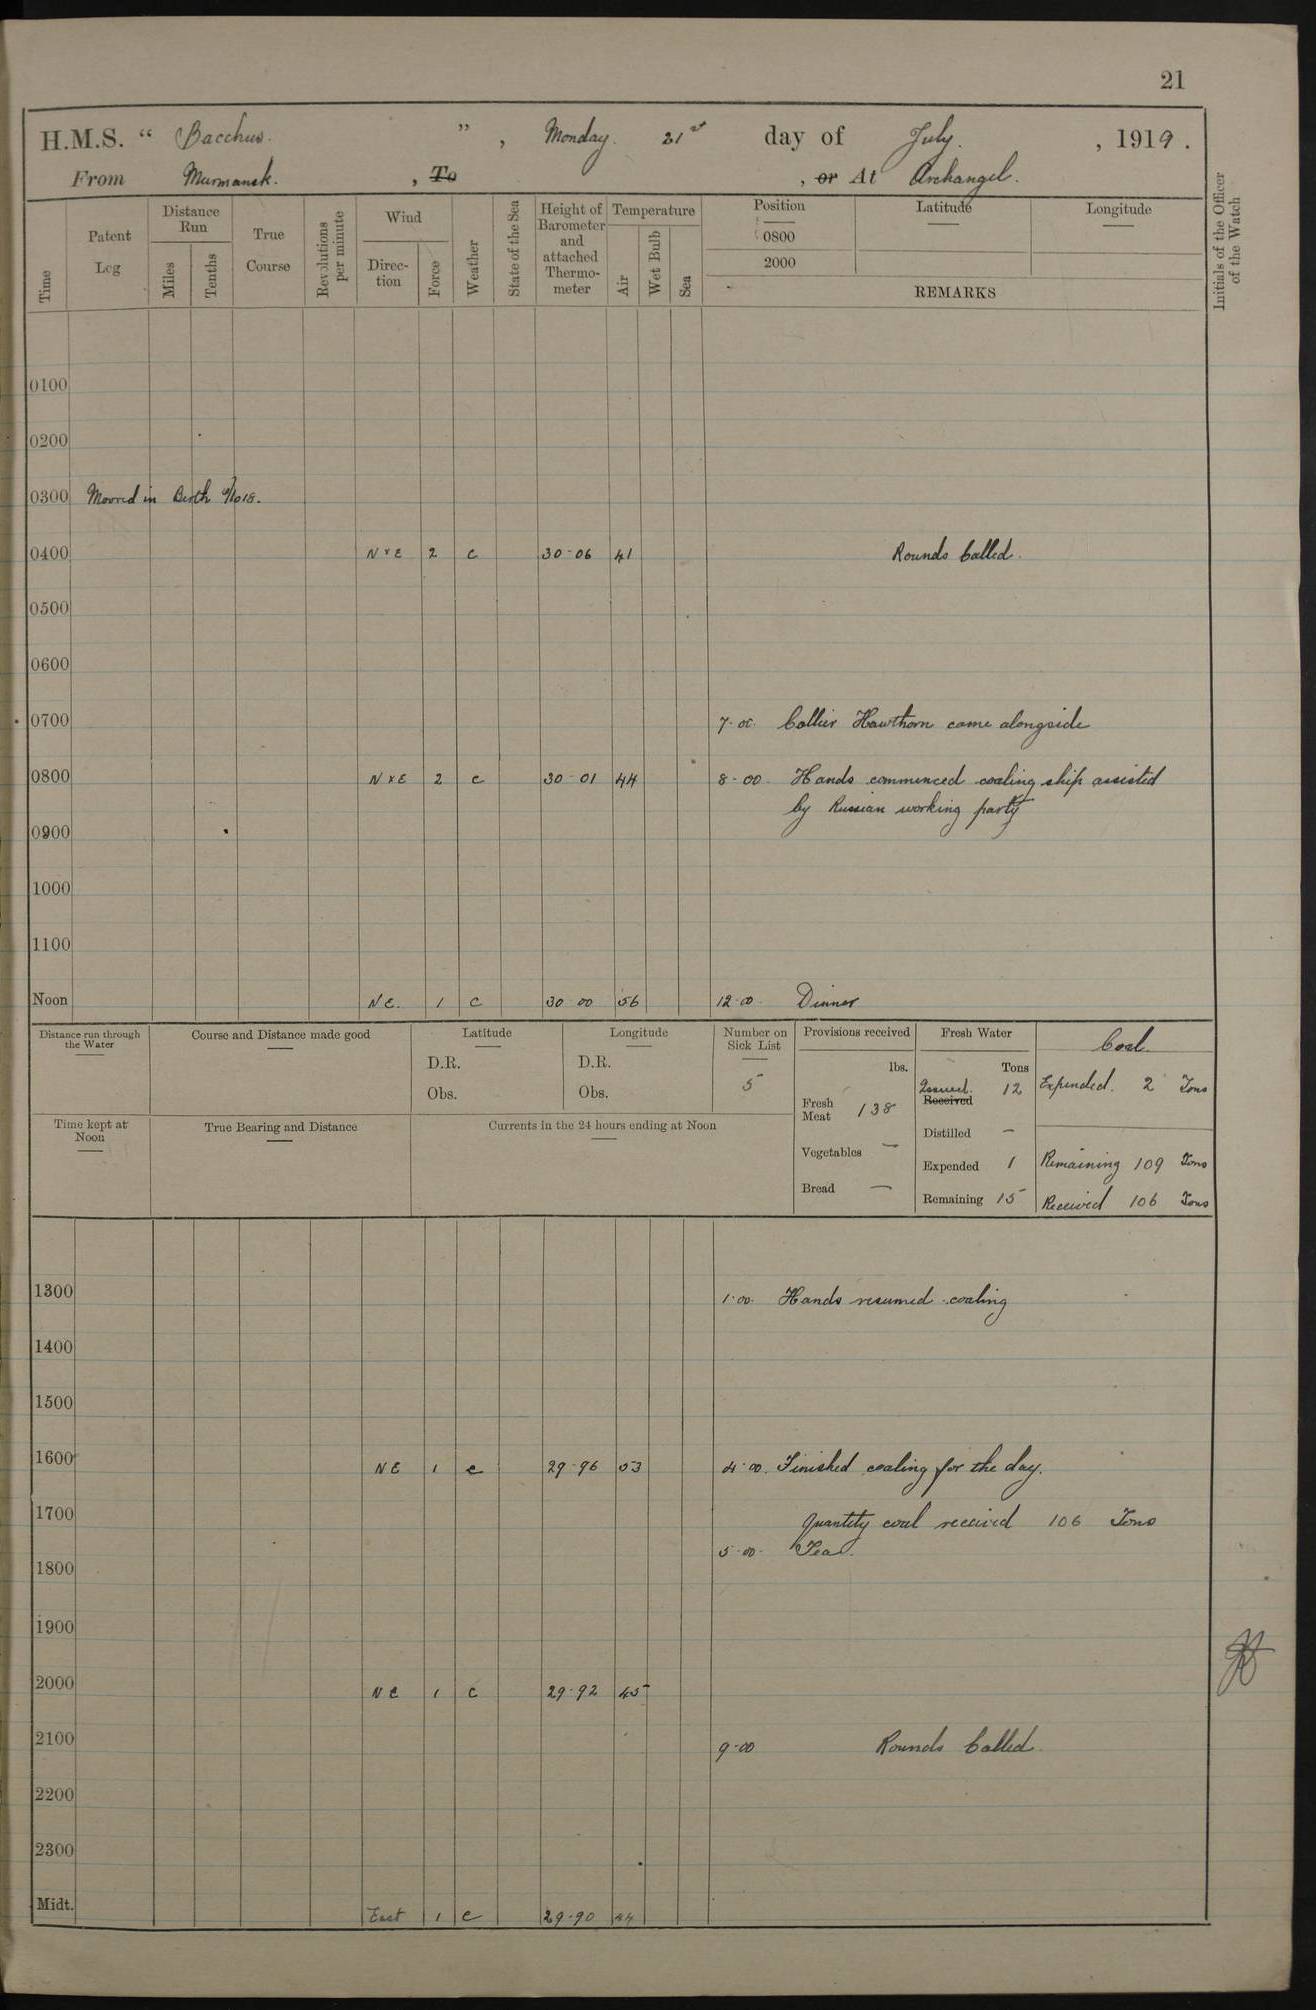 21
H.M.S. “ Bacchus. ” , Monday. 21st day of July. , 1919 .
From Murmansk. , To , or At Archangel.
Time
Patent Log
Distance Run
Miles
Tenths
True Course
Revolutions per minute
Wind
Direc- tion
Force
Weather
State of the Sea
Height of Barometer and attached Thermo- meter
Temperature
Air
Wet Bulb
Sea
Position Latitude Longitude
0800
2000
REMARKS
Initials of the Officer of the Watch
0100
0200
0300 Moored in Berth 18.
0400 N x E 2 c 30-06 41 Rounds Called.
0500
0600
0700 7-00. Collier Hawthorn came alongside
0800 N x E 2 c 30-01 44 8-00. Hands commenced coaling ship assisted
by Russian working party
0900
1000
1100
Noon NE. 1 c 30-00 56 12-00. Dinner
Distance run through the Water
Course and Distance made good
Latitude
D.R.
Obs.
Longitude
D.R.
Obs.
Number on Sick List
5
Provisions received
lbs.
Fresh Meat 138
Vegetables —
Bread —
Fresh Water
Tons
Issued. 12
Received
Distilled —
Expended 1
Remaining 15
Coal.
Expended. 2 Tons
Remaining 109 Tons
Received 106 Tons
Time kept at Noon
True Bearing and Distance
Currents in the 24 hours ending at Noon
1300 1-00. Hands resumed coaling
1400
1500
1600 NE 1 c 29-96 53 4-00. Finished coaling for the day.
1700 Quantity coal received 106 Tons
5-00. Tea.
1800
1900
2000 NE 1 c 29-92 45
2100 9-00 Rounds Called.
2200
2300
Midt. East 1 c 29-90 44